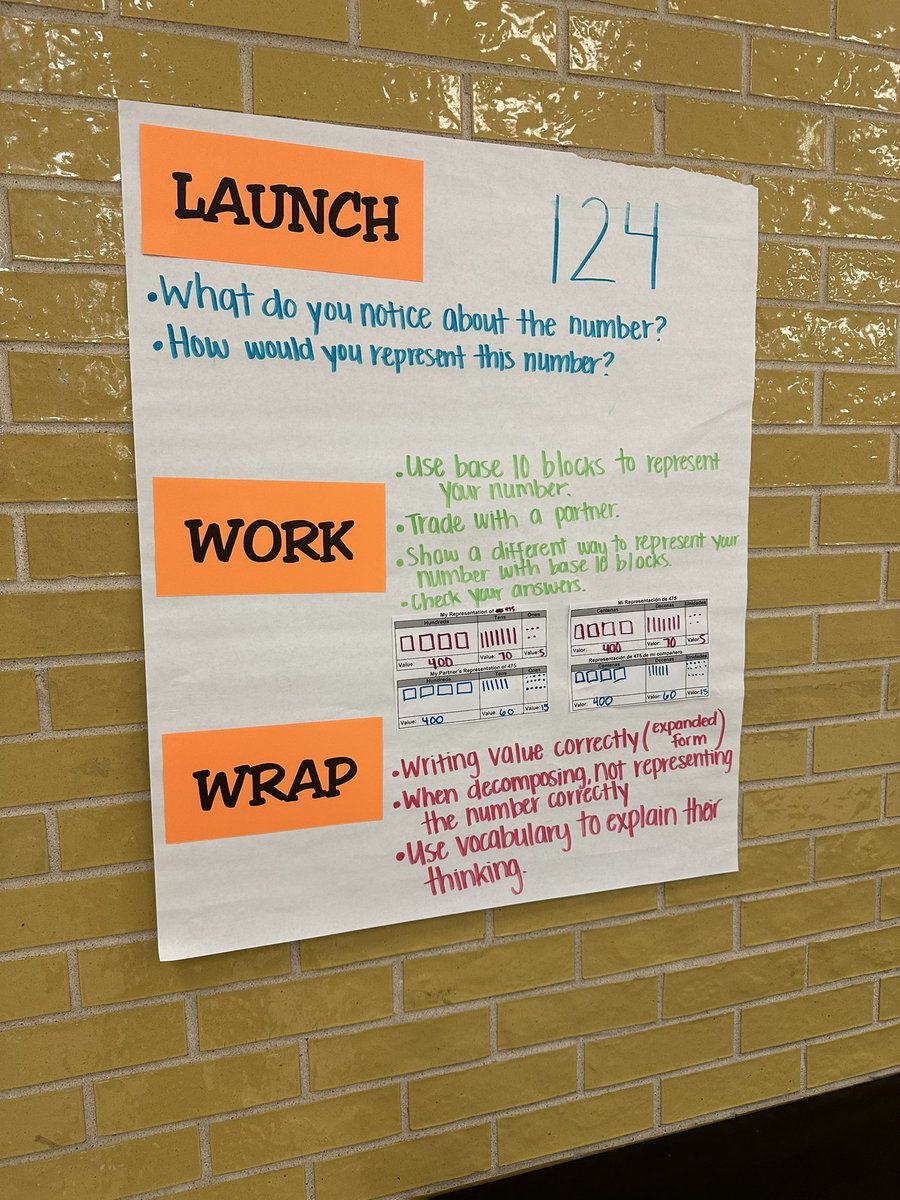 LAUNCH
124
• What do you notice about the number?
• How would you represent this number?
WORK
• Use base 10 blocks to represent
your number.
• Trade with a partner.
• Show a different way to represent your
number with base 10 blocks.
• Check your answers.
My Representation of 475
Hundreds Tens Ones
Value: 400 Value: 70 Value: 5
My Partner's Representation of 475
Hundreds Tens Ones
Value: 400 Value: 60 Value: 15
Mi Representación de 475
Centenas Decenas Unidades
Valor: 400 Valor: 70 Valor: 5
Representación de 475 de mi compañero
Centenas Decenas Unidades
Valor: 400 Valor: 60 Valor: 15
WRAP
• Writing value correctly (expanded
form)
• When decomposing, not representing
the number correctly
• Use vocabulary to explain their
thinking.